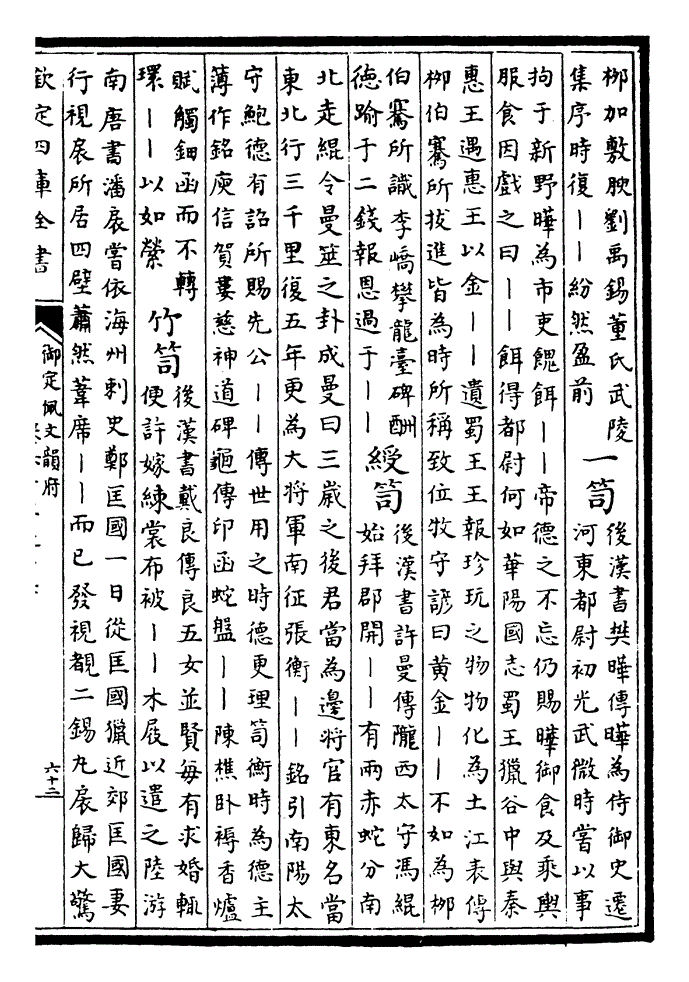 栁加敷腴劉禹錫董氏武陵
集序時復丨丨紛然盈前
一笥
後漢書樊曄傳曄為侍御史遷
河東都尉初光武微時嘗以事
拘于新野曄為市吏餽餌丨丨帝德之不忘仍賜曄御食及乘輿
服食因戲之曰丨丨餌得都尉何如華陽國志蜀王獵谷中與秦
惠王遇惠王以金丨丨遺蜀王王報珍玩之物物化為土江表傳
栁伯騫所拔進皆為時所稱致位牧守諺曰黄金丨丨不如為栁
伯騫所識李嶠攀龍臺碑酬
德踰于二錢報恩過于丨丨
綬笥
後漢書許曼傳隴西太守馮緄
始拜郡開丨丨有兩赤蛇分南
北走緄令曼筮之卦成曼曰三歳之後君當為邊將官有東名當
東北行三千里復五年更為大將軍南征張衡丨丨銘引南陽太
守鮑德有詔所賜先公丨丨傳世用之時德更理笥衡時為德主
簿作銘庾信賀婁慈神道碑龜傳印函蛇盤丨丨陳樵卧褥香爐
賦觸鈿函而不轉
環丨丨以如縈
竹笥
後漢書戴良傳良五女並賢每有求婚輒
便許嫁練裳布被丨丨木屐以遣之陸游
南唐書潘扆嘗依海州刺史鄭匡國一日從匡國獵近郊匡國妻
行視扆所居四壁蕭然葦席丨丨而已發視覩二錫丸扆歸大驚
欽定四庫全書
御定佩文韻府
六十二